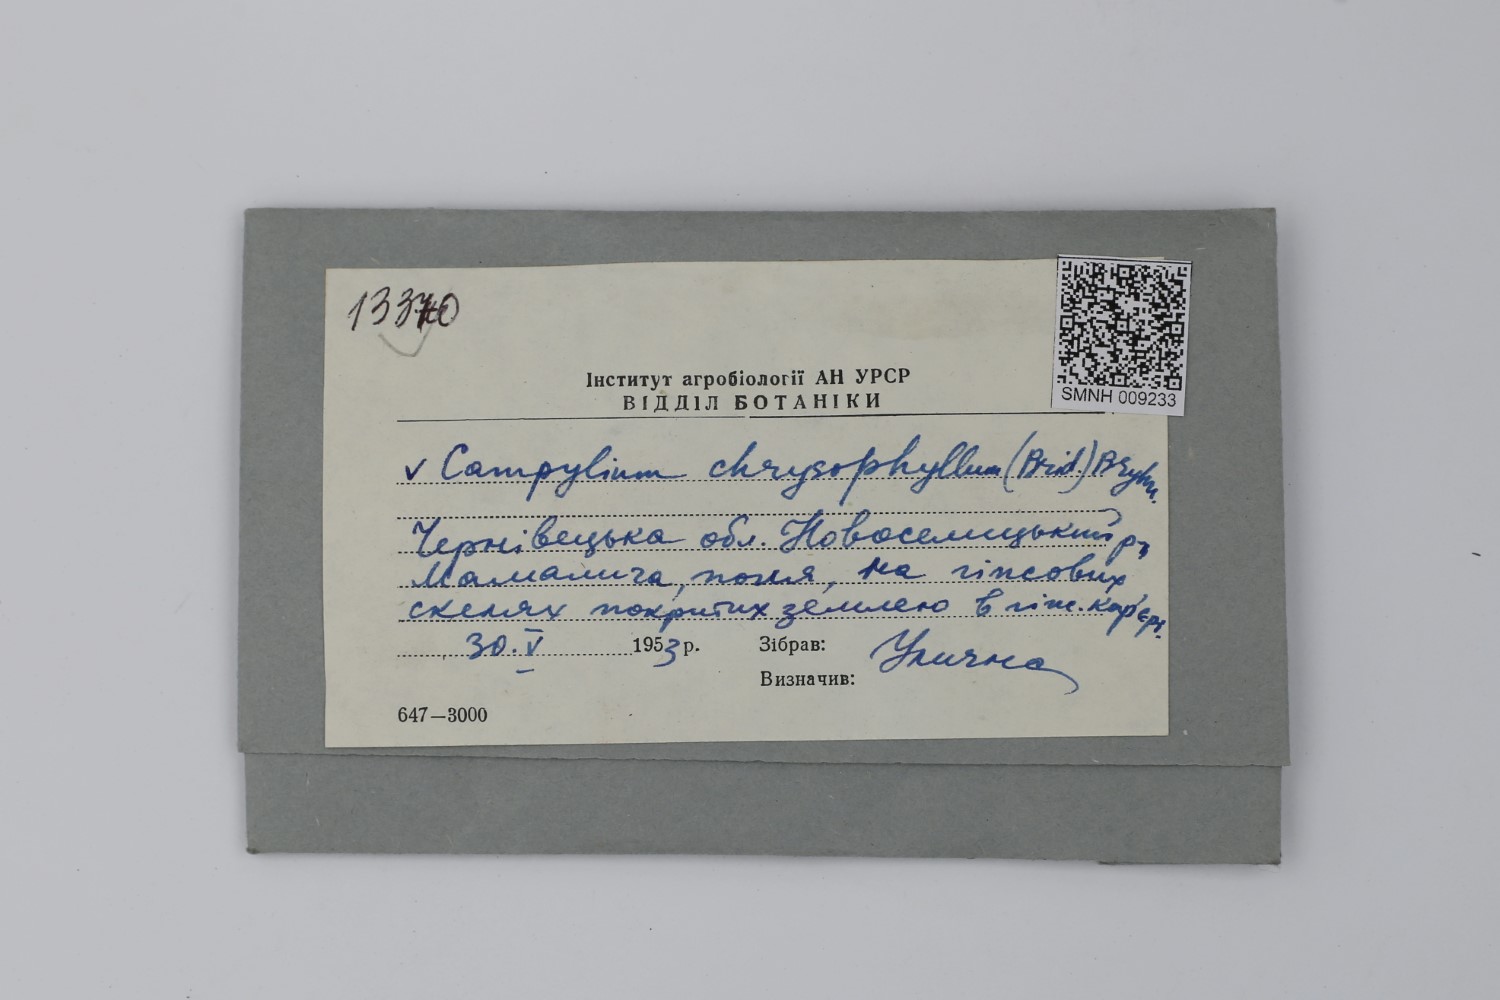 SMNH 009233
Інститут агробіології АН УРСР
ВІДДІЛ БОТАНІКИ
v Campylium chrysophyllum (Brid) Bryhn.
Чернівецька обл. Новоселицький р-н
Мамалига, поля, на гіпсових
скелях покритих землею в гіпс. кар'єрі.
30.V 1953 р. Зібрав: Улична
Визначив:
647—3000